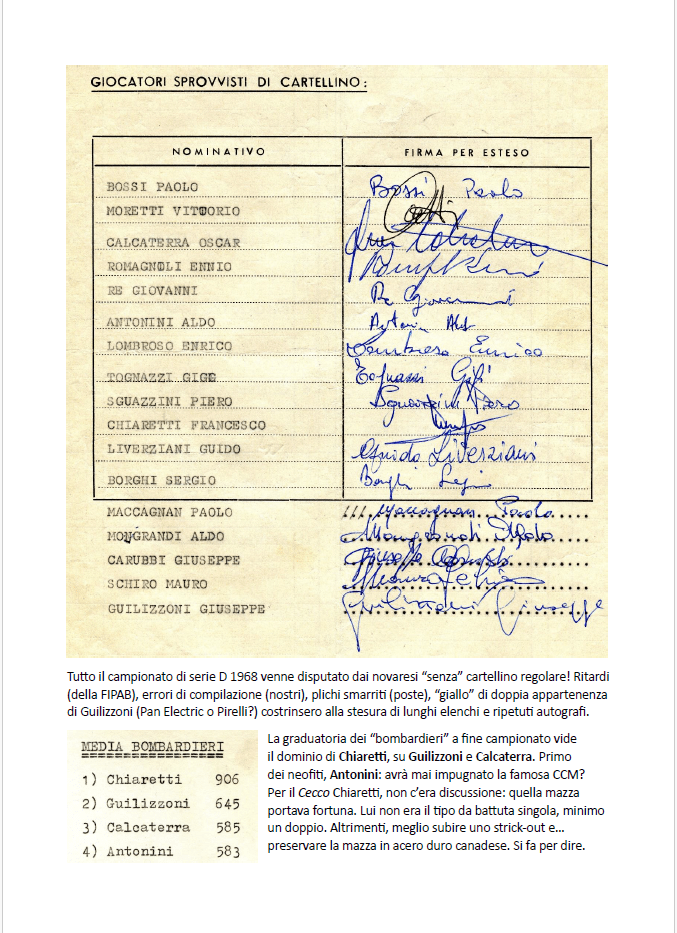 GIOCATORI SPROVVISTI DI CARTELLINO:
NOMINATIVO FIRMA PER ESTESO
BOSSI PAOLO Bossi Paolo
MORETTI VITTORIO
CALCATERRA OSCAR
ROMAGNOLI ENNIO
RE GIOVANNI Re Giovanni
ANTONINI ALDO
LOMBROSO ENRICO Lombroso Enrico
TOGNAZZI GIGE
SGUAZZINI PIERO Sguazzini Piero
CHIARETTI FRANCESCO
LIVERZIANI GUIDO Guido Liverziani
BORGHI SERGIO
MACCAGNAN PAOLO Maccagnan Paolo
MONGRANDI ALDO
CARUBBI GIUSEPPE
SCHIRO MAURO
GUILIZZONI GIUSEPPE Guilizzoni Giuseppe
Tutto il campionato di serie D 1968 venne disputato dai novaresi “senza” cartellino regolare! Ritardi
(della FIPAB), errori di compilazione (nostri), plichi smarriti (poste), “giallo” di doppia appartenenza
di Guilizzoni (Pan Electric o Pirelli?) costrinsero alla stesura di lunghi elenchi e ripetuti autografi.
MEDIA BOMBARDIERI
1) Chiaretti 906
2) Guilizzoni 645
3) Calcaterra 585
4) Antonini 583
La graduatoria dei “bombardieri” a fine campionato vide
il dominio di Chiaretti, su Guilizzoni e Calcaterra. Primo
dei neofiti, Antonini: avrà mai impugnato la famosa CCM?
Per il Cecco Chiaretti, non c’era discussione: quella mazza
portava fortuna. Lui non era il tipo da battuta singola, minimo
un doppio. Altrimenti, meglio subire uno strick-out e…
preservare la mazza in acero duro canadese. Si fa per dire.